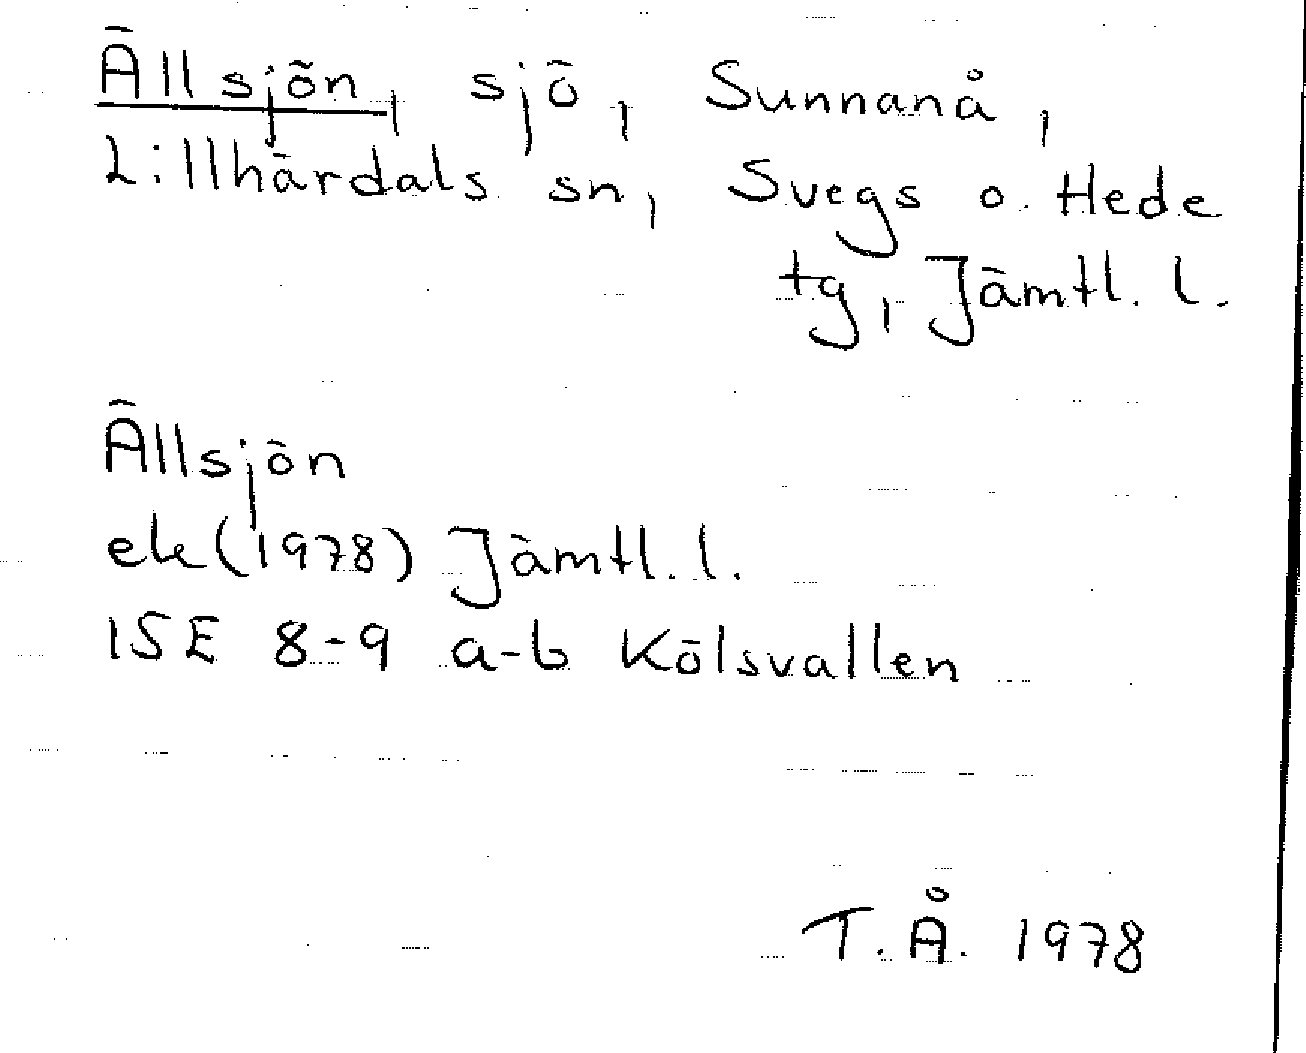 Ällsjön, sjö, Sunnanå,
Lillhärdals sn, Svegs o. Hede
tg, Jämtl. l.
Ällsjön
ek (1978) Jämtl. l.
15E 8-9 a-b Kölsvallen
T. Å. 1978